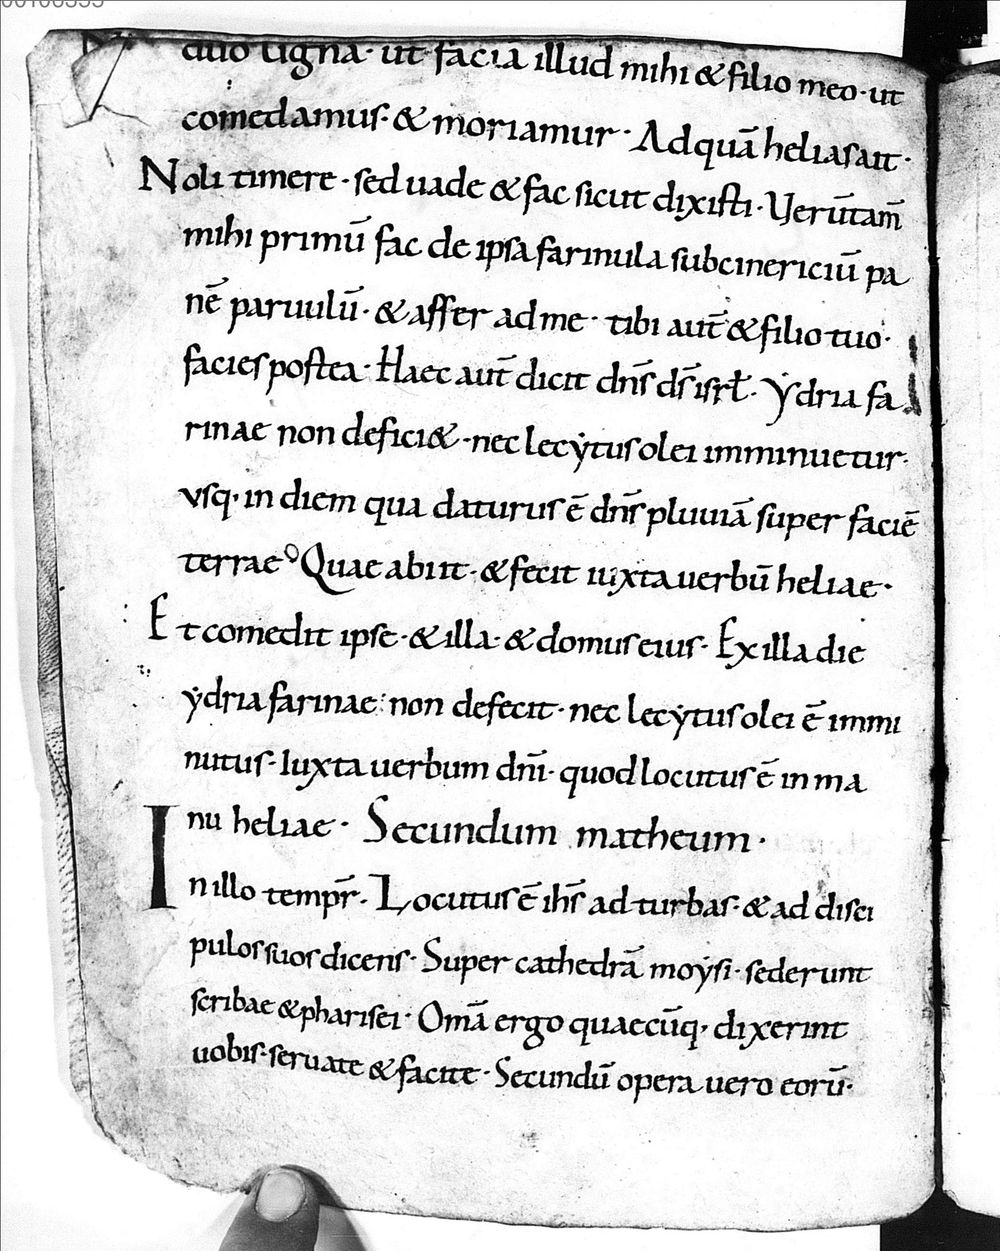 duo ligna· ut faciā illud mihi & filio meo· ut
comedamus· & moriamur· Ad quā helias ait·
Noli timere· sed uade & fac sicut dixisti· Uerūtam̄
mihi primū fac de ipsa farinula subcinericiū pa
nē paruulū· & affer ad me· tibi aut̄ & filio tuo·
facies postea· Haec aut̄ dicit dn̄s ds̄ isrł· Ẏdria fa
rinae non defici&· nec lecẏtus olei imminuetur·
vsq· in diem qua daturus ē dn̄s pluuiā super faciē
terrae Quae abiit· & fecit iuxta uerbū heliae·
Et comedit ipse· & illa· & domus eius· Ex illa die
ẏdria farinae: non defecit· nec lecẏtus olei ē immi
nutus· Iuxta uerbum dn̄i· quod locutus ē in ma
nu heliae· Secundum matheum·
In illo tempr̄· Locutus ē ihs̄ ad turbas· & ad disci
pulos suos dicens· Super cathedrā moẏsi· sederunt
scribae & pharisei· Om̄a ergo quaecūq· dixerint
uobis· seruate & facite· Secundū opera uero eorū·